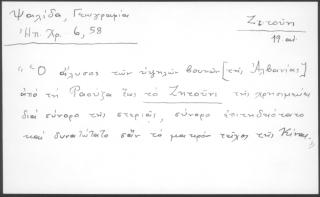 Ψαλίδα, Γεωγραφία
Ἠπ. Χρ. 6, 58
Ζητούνι
19 αι.
"Ὁ ἅλυσος τῶν ὑψηλῶν βουνῶν [τῆς Ἀλβανίας]
ἀπό τή Ραούζα ἕως τό Ζητούνι τῆς χρησιμεύει
διά σύνορο τῆς στεριᾶς, σύνορο ἐπιτηδειότατο
καί δυνατώτατο σάν τό μακρόν τεῖχος τῆς Κίνας"